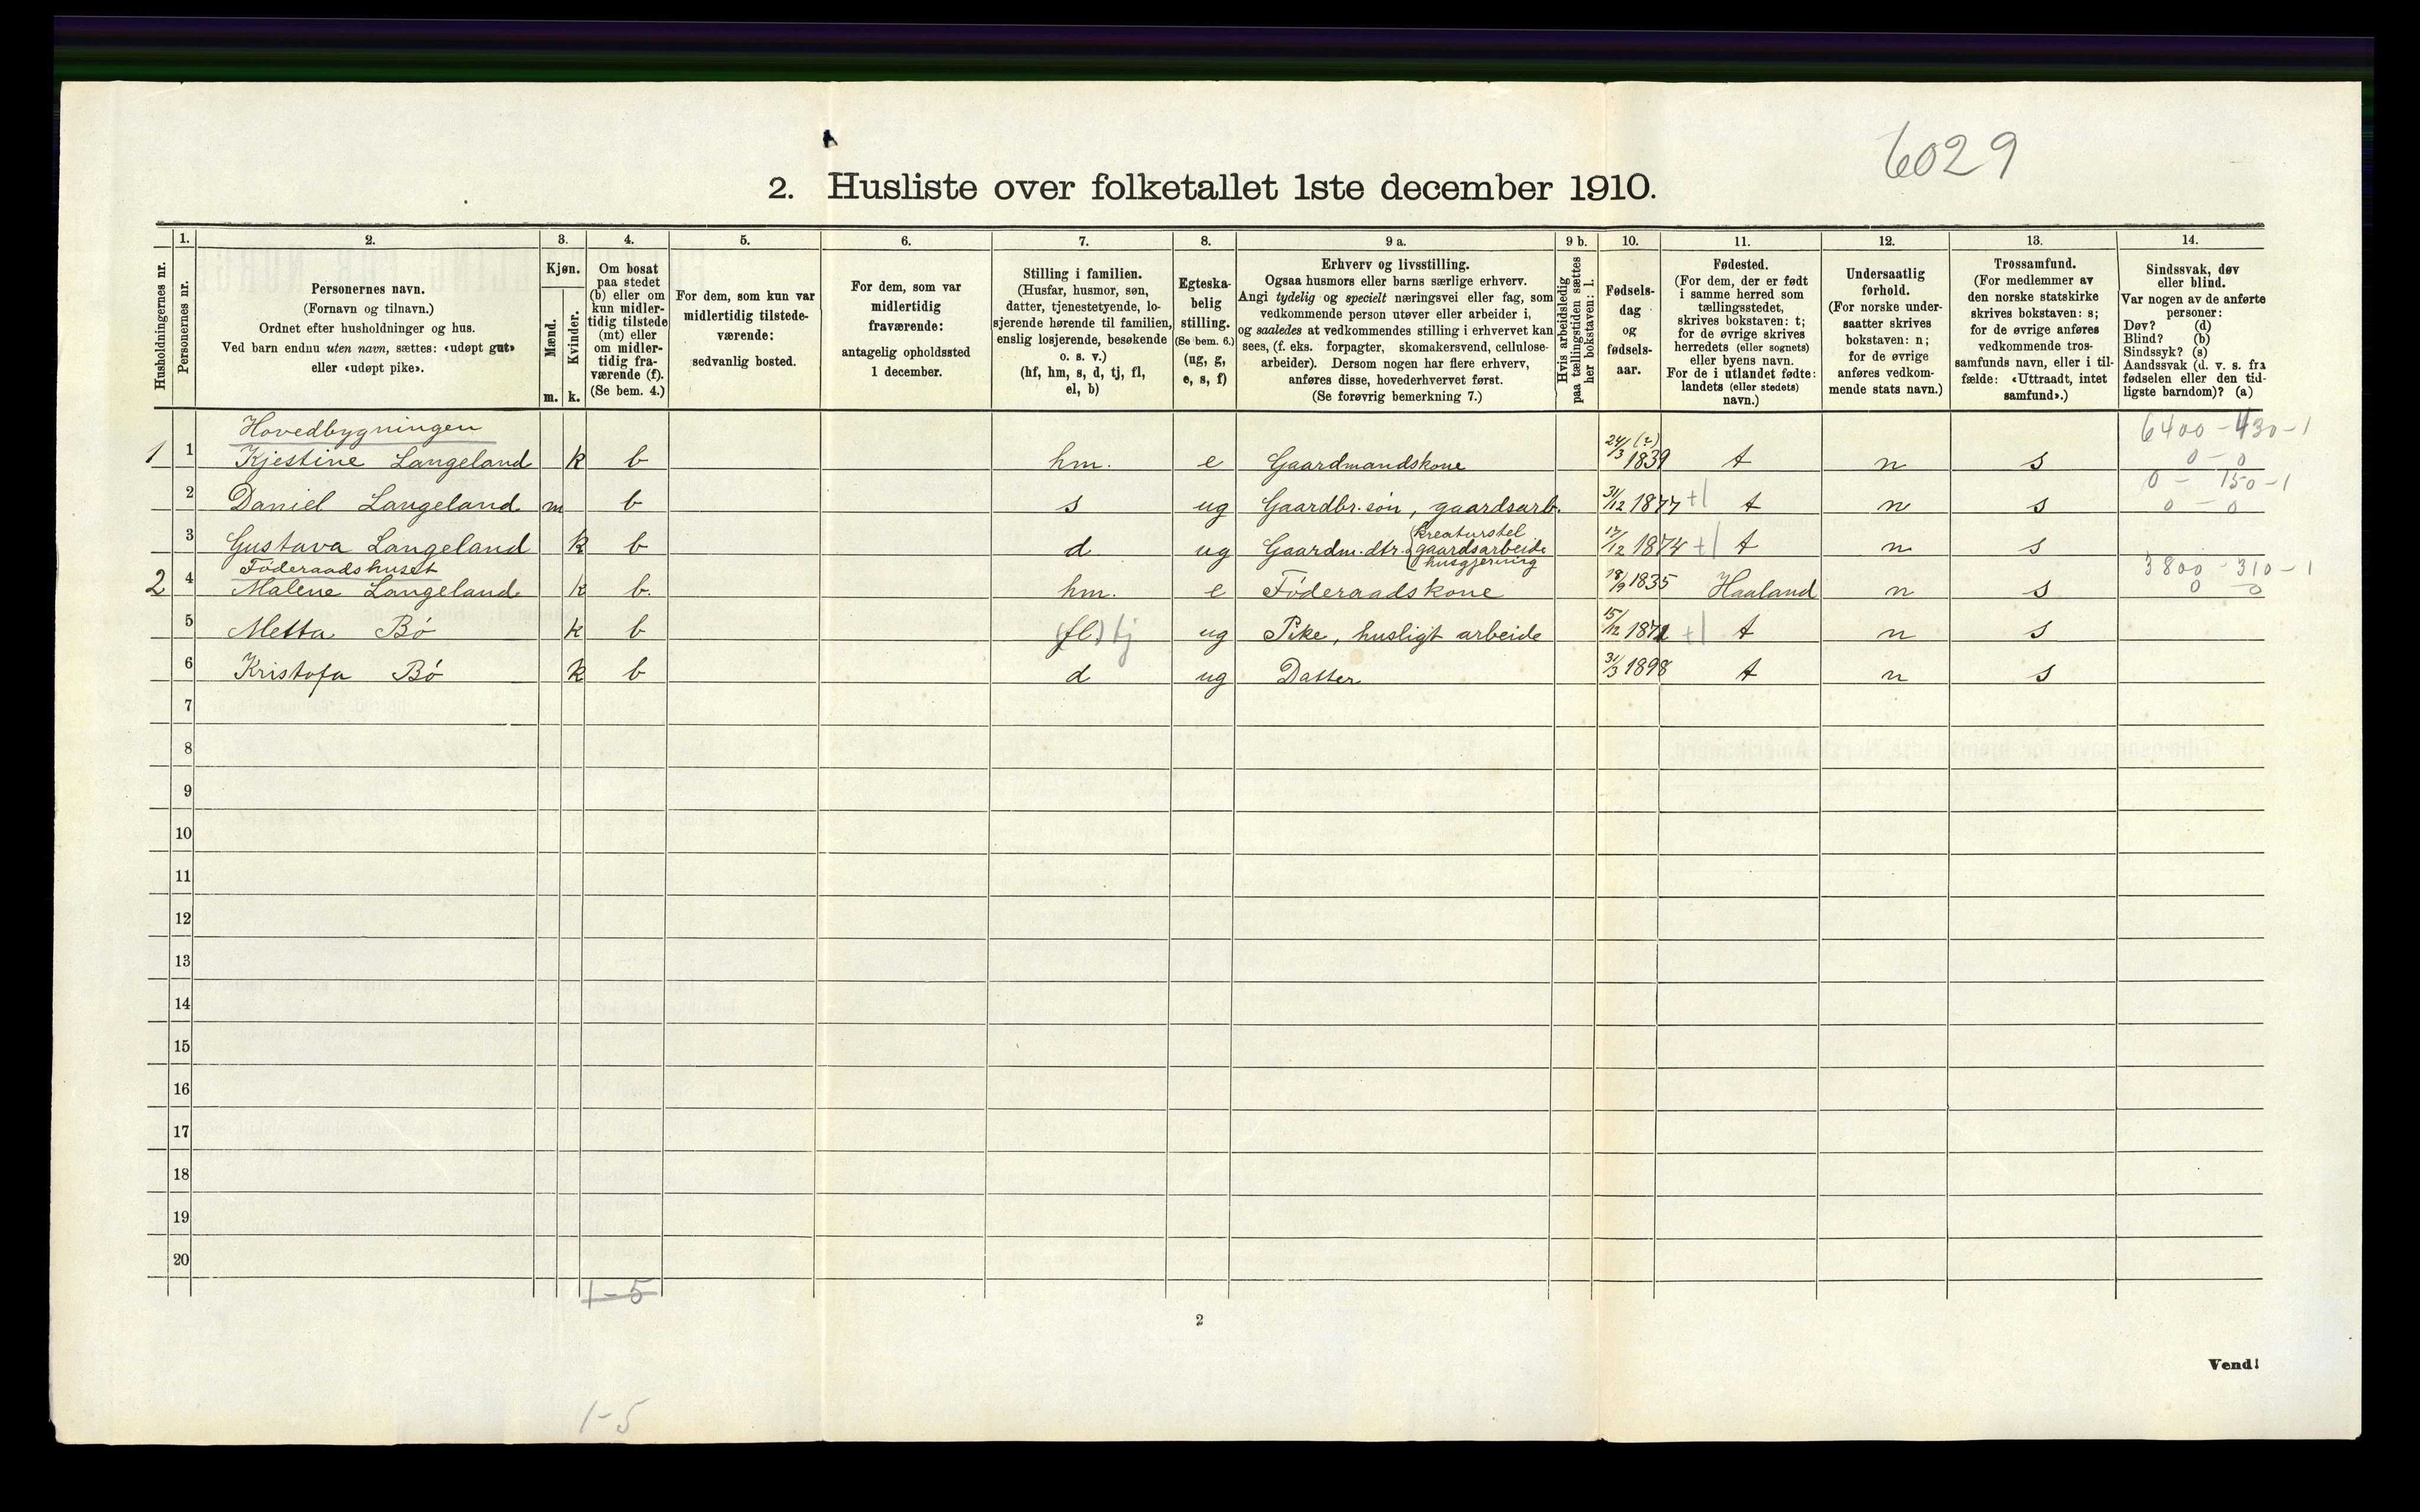 6029
2. Husliste over folketallet 1ste december 1910.
Husholdningernes nr.
1.
Personernes nr.
2.
Personernes navn.
(Fornavn og tilnavn.)
Ordnet efter husholdninger og hus.
Ved barn endnu uten navn, sættes: «udøpt gut»
eller «udøpt pike».
3.
Kjøn.
Mænd.
Kvinder.
m. k.
4.
Om bosat
paa stedet
(b) eller om
kun midler-
tidig tilstede
(mt) eller
om midler-
tidig fra-
værende (f).
(Se bem. 4.)
5.
For dem, som kun var
midlertidig tilstede-
værende:
sedvanlig bosted.
6.
For dem, som var
midlertidig
fraværende:
antagelig opholdssted
1 december.
7.
Stilling i familien.
(Husfar, husmor, søn,
datter, tjenestetyende, lo-
sjerende hørende til familien,
enslig losjerende, besøkende
o. s. v.)
(hf, hm, s, d, tj, fl,
el, b)
8.
Egteska-
belig
stilling.
(Se bem. 6.)
(ug, g,
e, s, f)
9 a.
Erhverv og livsstilling.
Ogsaa husmors eller barns særlige erhverv.
Angi tydelig og specielt næringsvei eller fag, som
vedkommende person utøver eller arbeider i,
og saaledes at vedkommendes stilling i erhvervet kan
sees, (f. eks. forpagter, skomakersvend, cellulose-
arbeider). Dersom nogen har flere erhverv,
anføres disse, hovederhvervet først.
(Se forøvrig bemerkning 7.)
9 b.
Hvis arbeidsledig
paa tællingstiden sættes
her bokstaven: l.
10.
Fødsels-
dag
og
fødsels-
aar.
11.
Fødested.
(For dem, der er født
i samme herred som
tællingsstedet,
skrives bokstaven: t;
for de øvrige skrives
herredets (eller sognets)
eller byens navn.
For de i utlandet fødte:
landets (eller stedets)
navn.)
12.
Undersaatlig
forhold.
(For norske under-
saatter skrives
bokstaven: n;
for de øvrige
anføres vedkom-
mende stats navn.)
13.
Trossamfund.
(For medlemmer av
den norske statskirke
skrives bokstaven: s;
for de øvrige anføres
vedkommende tros-
samfunds navn, eller i til-
fælde: «Uttraadt, intet
samfund».)
14.
Sindssvak, døv
eller blind.
Var nogen av de anførte
personer:
Døv? (d)
Blind? (b)
Sindssyk? (s)
Aandssvak (d. v. s. fra
fødselen eller den tid-
ligste barndom)? (a)
Hovedbygningen 6400 - 430 - 1
1 1 Kjestine Langeland k b hm. e Gaardmandskone 24/3 (?) 1839 t n s 0 - 0
0 - 150 - 1
2 Daniel Langeland m b s ug Gaardbr. søn, gaardsarb. 31/12 1877 +1 t n s 0 - 0
3 Gustava Langeland k b d ug Gaardm. dtr. { kreaturstel gaardsarbeide husgjerning 17/12 1874 +1 t n s
Föderaadshuset 3800 - 310 - 1
2 4 Malene Langeland k b. hm. e Föderaadskone 18/9 1835 Haaland n s 0 0
5 Metta Bö k b (fl) tj ug Pike, husligt arbeide 15/12 1871 +1 t n s
6 Kristofa Bö k b d ug Datter 31/3 1898 t n s
7
8
9
10
11
12
13
14
15
16
17
18
19
20
1-5
2
Vend!
1-5